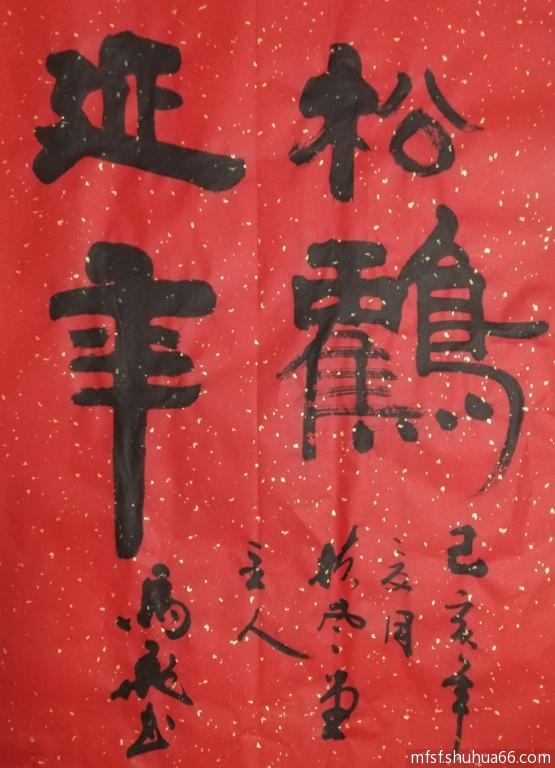 松鹤
延年
己亥年
夏月
堂
主人
馬飛书
mfsfshuhua66.com